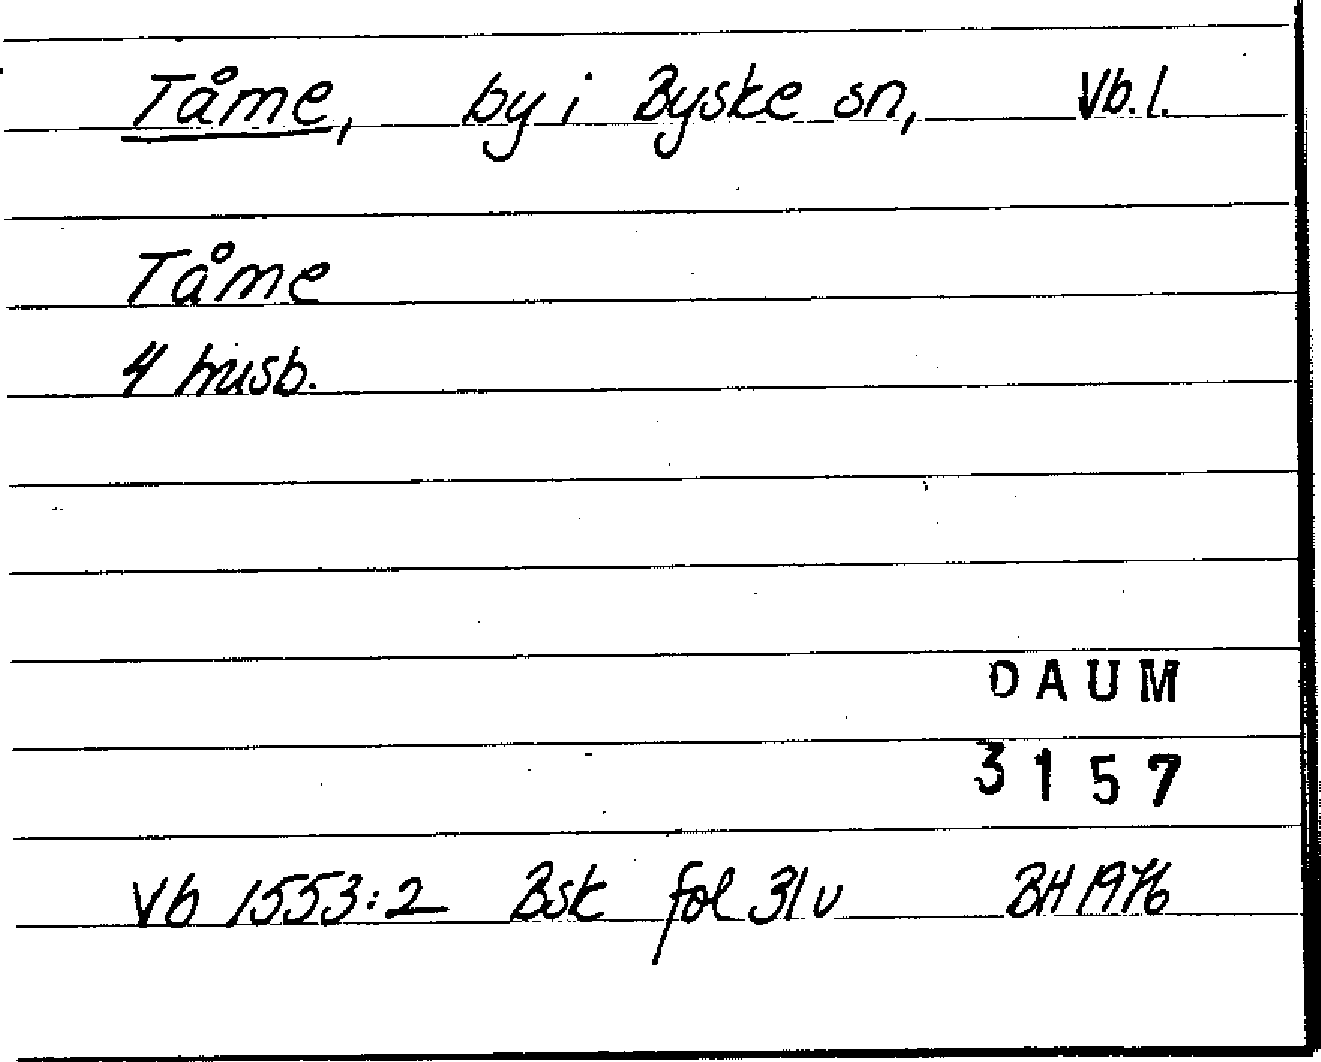 Tåme, by i Byske sn, Vb. l.
Tåme
4 husb.
DAUM
3157
Vb 1553:2 Bsk fol 31 v BH 1976